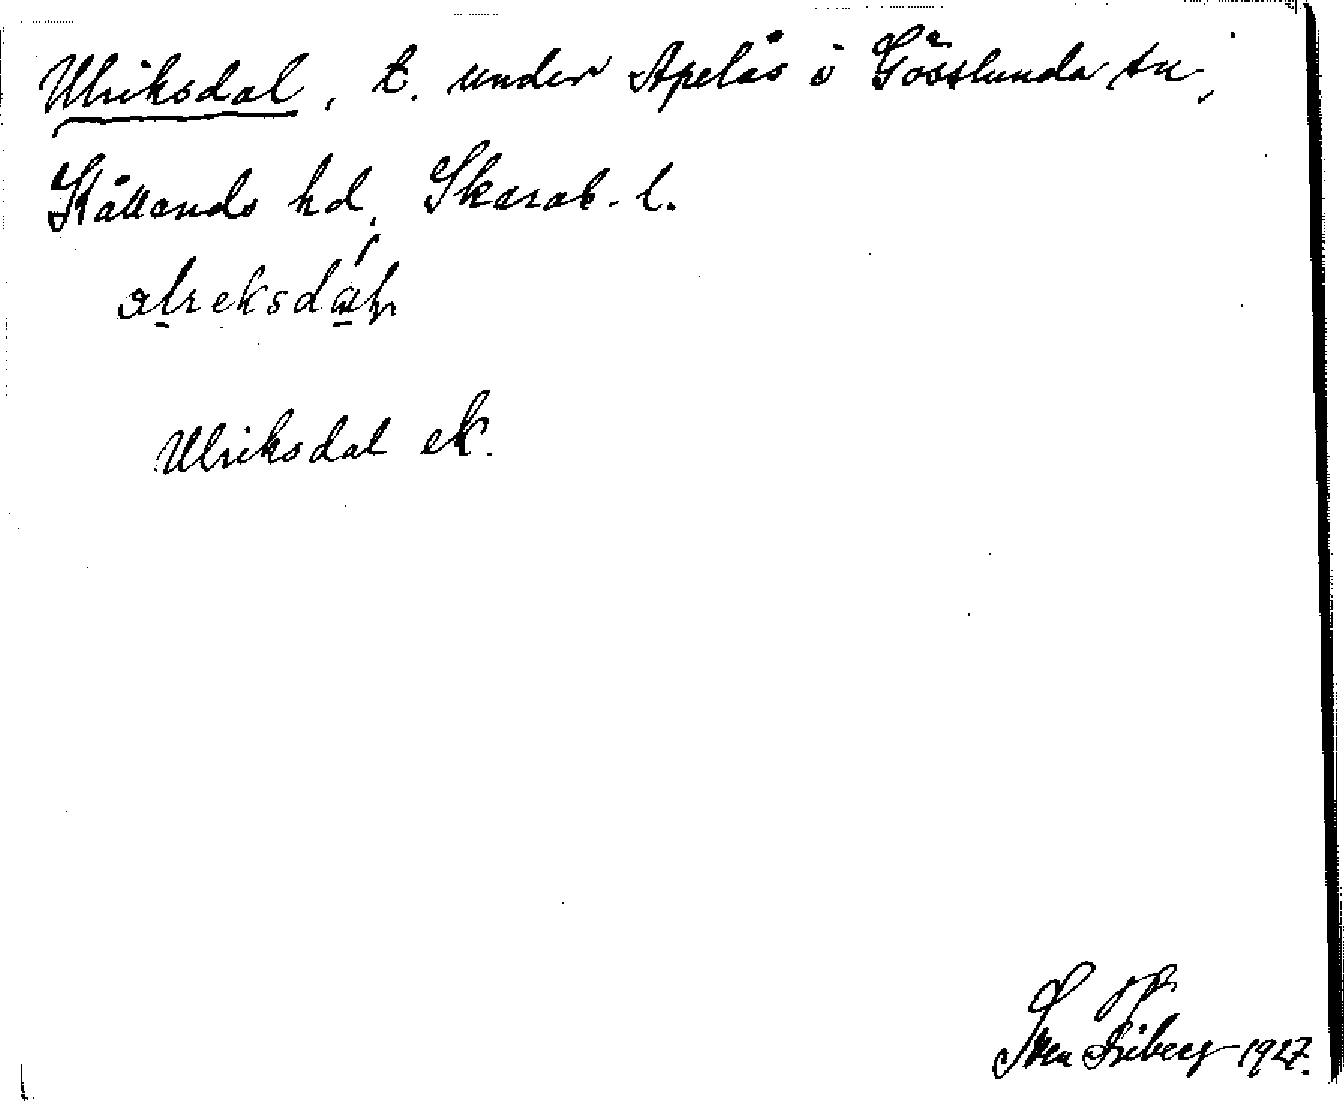 Ulriksdal, t. under Apelås i Gösslunda sn,
Kållands hd, Skarab. l.
Ulriksdal ek.
Sven Friberg 1927.